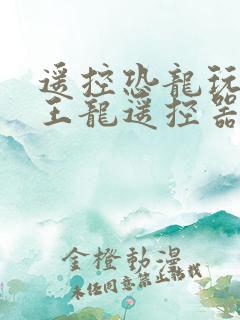 遥控恐龍玩
王龍遥控器
金橙動漫
未任同意禁止轉载